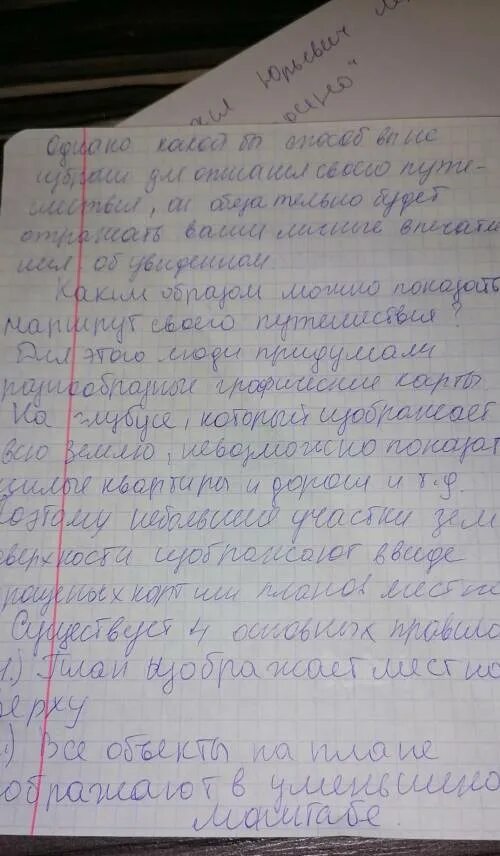 Юрьевич
Однако какой бы способ вы не
избрали для описания своего путе-
шествия, он обезательно будет
отражать ваши личные впечатл
ния об увиденном.
Каким образом можно показать
маршрут своего путешествия?
Для этого люди придумали
разнообразные графические карты
На глубусе, который изображает
всю Землю, невозможно показат
жилые квартиры и дороги и т.д.
Поэтому небольшие участки зем
оверхности изображают ввиде
рощеных карт или планов местн
Существует 4 основных правила
1.) План изображает местно
верху
.) Все объекты на плане
ображают в уменьшено
маштабе.